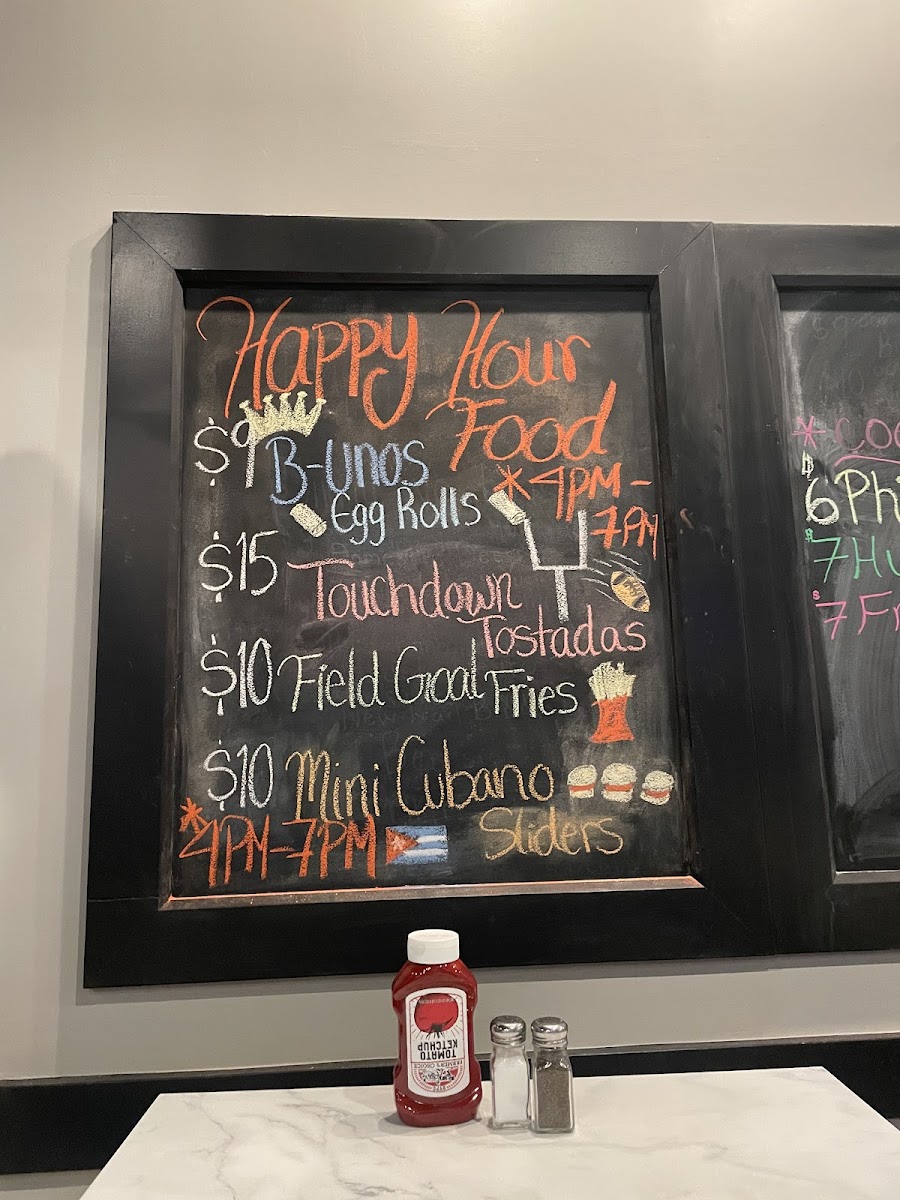 Happy Hour
Food
$9 B-Unos
Egg Rolls
*4PM-
7PM
$15 Touchdown
Tostadas
$10 Field Goal Fries
$10 Mini Cubano
Sliders
*4PM-7PM
*
$6
$7
$7
TOMATO
KETCHUP